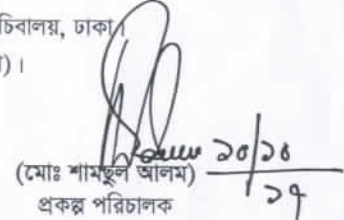 চিবালয়, ঢাকা।
)।
১০/১০
১৭
(মোঃ শামছুল আলম)
প্রকল্প পরিচালক